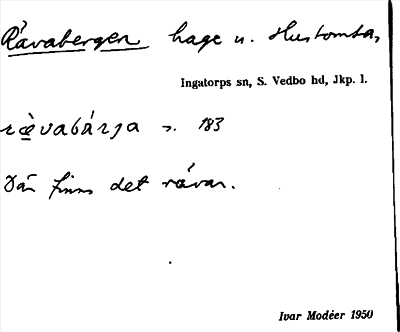 Rävabergen hage u. Hustomta,
Ingatorps sn, S. Vedbo hd, Jkp. l.
ræ̀vabárja s. 183
Där finns det rävar.
Ivar Modéer 1950